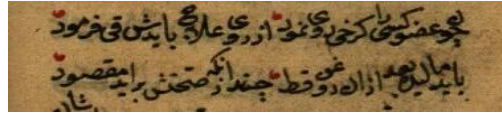 چو عضو کسی را کرخی روی نمود از روی علاج بایدش قی فرمود
باید مالید بعد ازان روغن قسط چندانکه صحتش براید مقصود